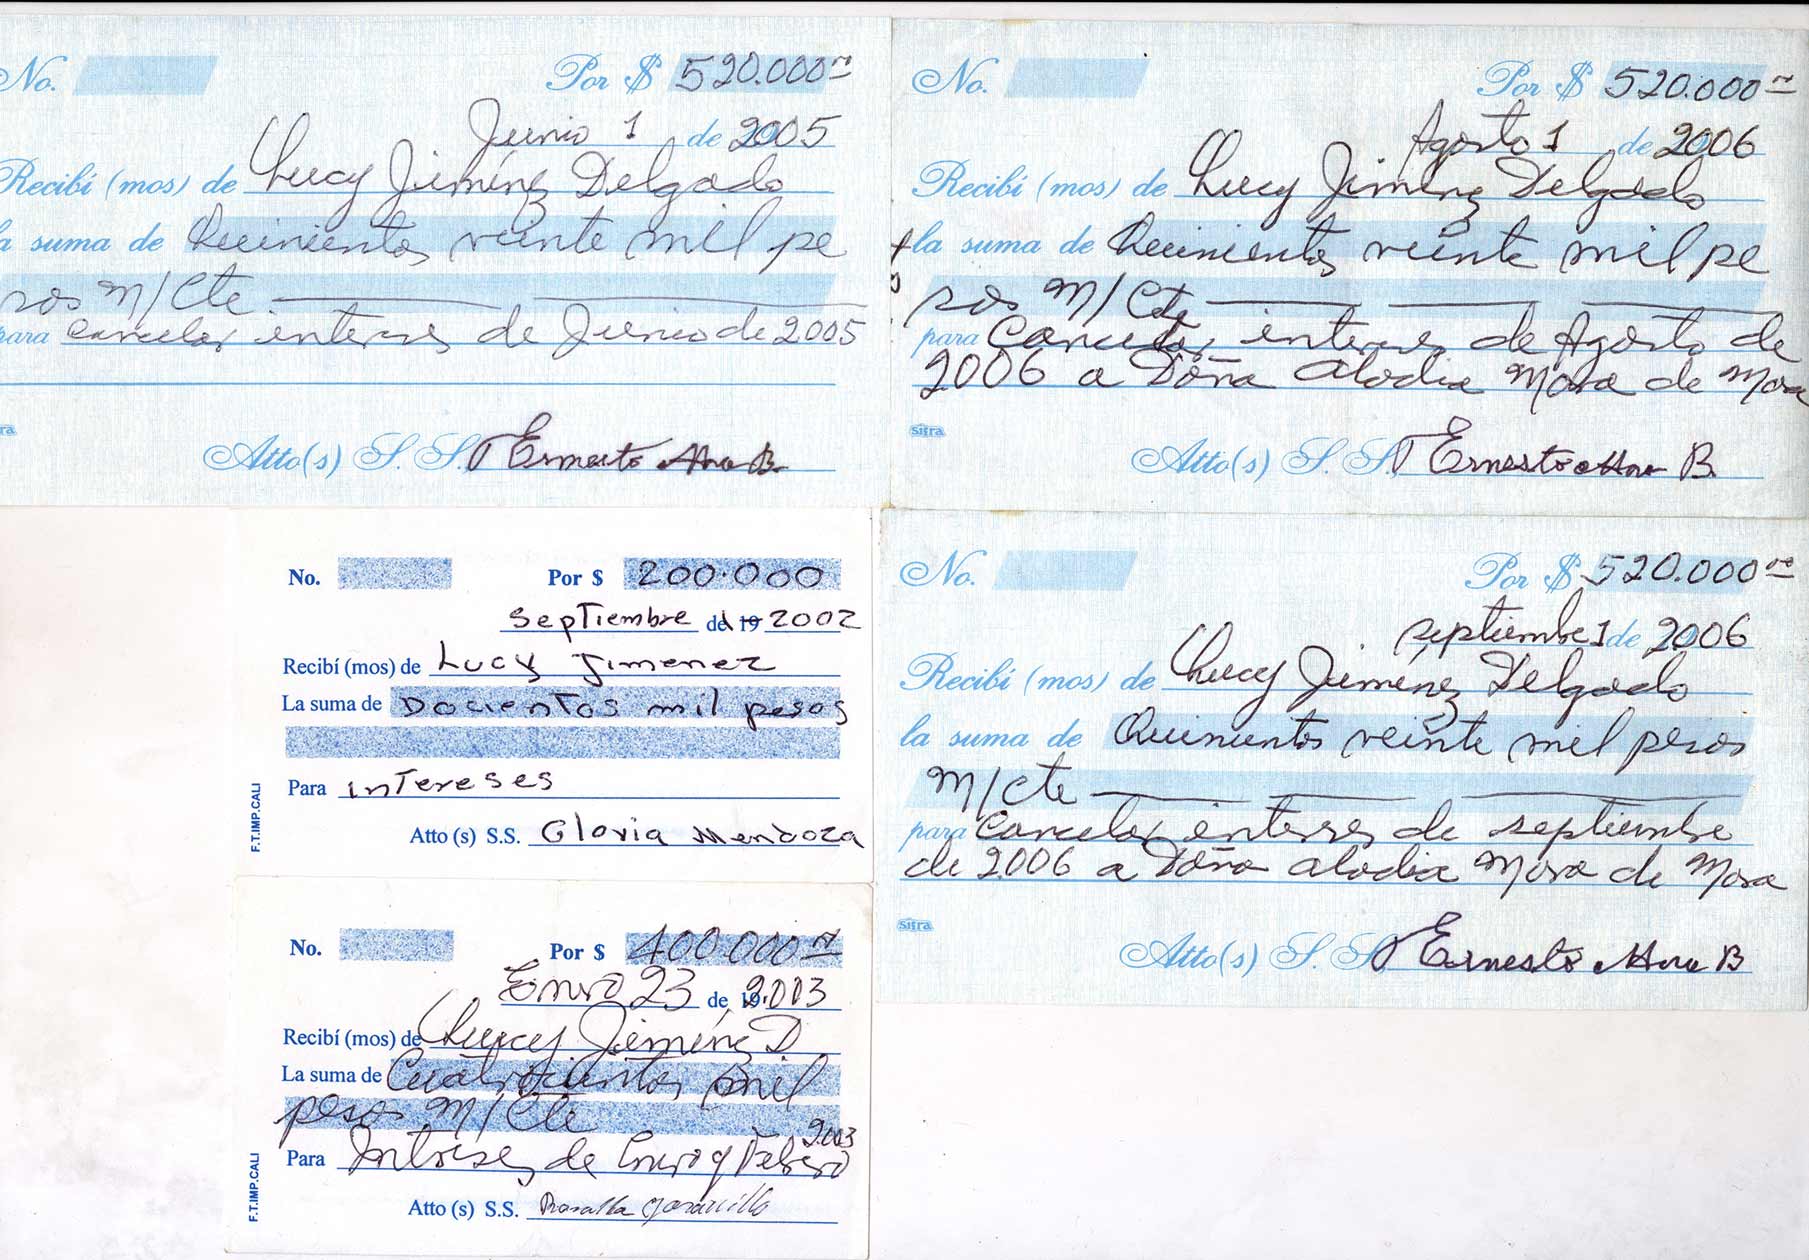 No. Por $ 520.000 m
Junio 1 de 2005
Recibí (mos) de Lucy Jiménez Delgado
la suma de Quinientos veinte mil pe
sos M/Cte
para Cancelar interses de Junio de 2005
Atto(s) S. S. Ernesto Mora B.
No. Por $ 520.000 m
Agosto 1 de 2006
Recibí (mos) de Lucy Jiménez Delgado
la suma de Quinientos veinte mil pe
sos M/Cte
para Cancelar interses de Agosto de
2006 a Doña Alodia Mora de Mora
sifra
Atto(s) S. S. Ernesto Mora B.
No. Por $ 200.000
Septiembre de 19 2002
Recibí (mos) de Lucy Jimenez
La suma de Docientos mil pesos
Para intereses
Atto (s) S.S. Gloria Mendoza
F.T.IMP.CALI
No. Por $ 520.000 m
septiembre 1 de 2006
Recibí (mos) de Lucy Jiménez Delgado
la suma de Quinientos veinte mil pesos
M/Cte
para Cancelar interses de septiembre
de 2006 a Doña Alodia Mora de Mora
sifra
Atto(s) S. S. Ernesto Mora B
No. Por $ 400.000 m
Enero 23 de 19 2.003
Recibí (mos) de Lucy Jiménez D
La suma de Cuatrocientos mil
pesos M/Cte
2.003
Para Intereses de Enero y Febrero
Atto (s) S.S. Rosalba Jaramillo
F.T.IMP.CALI